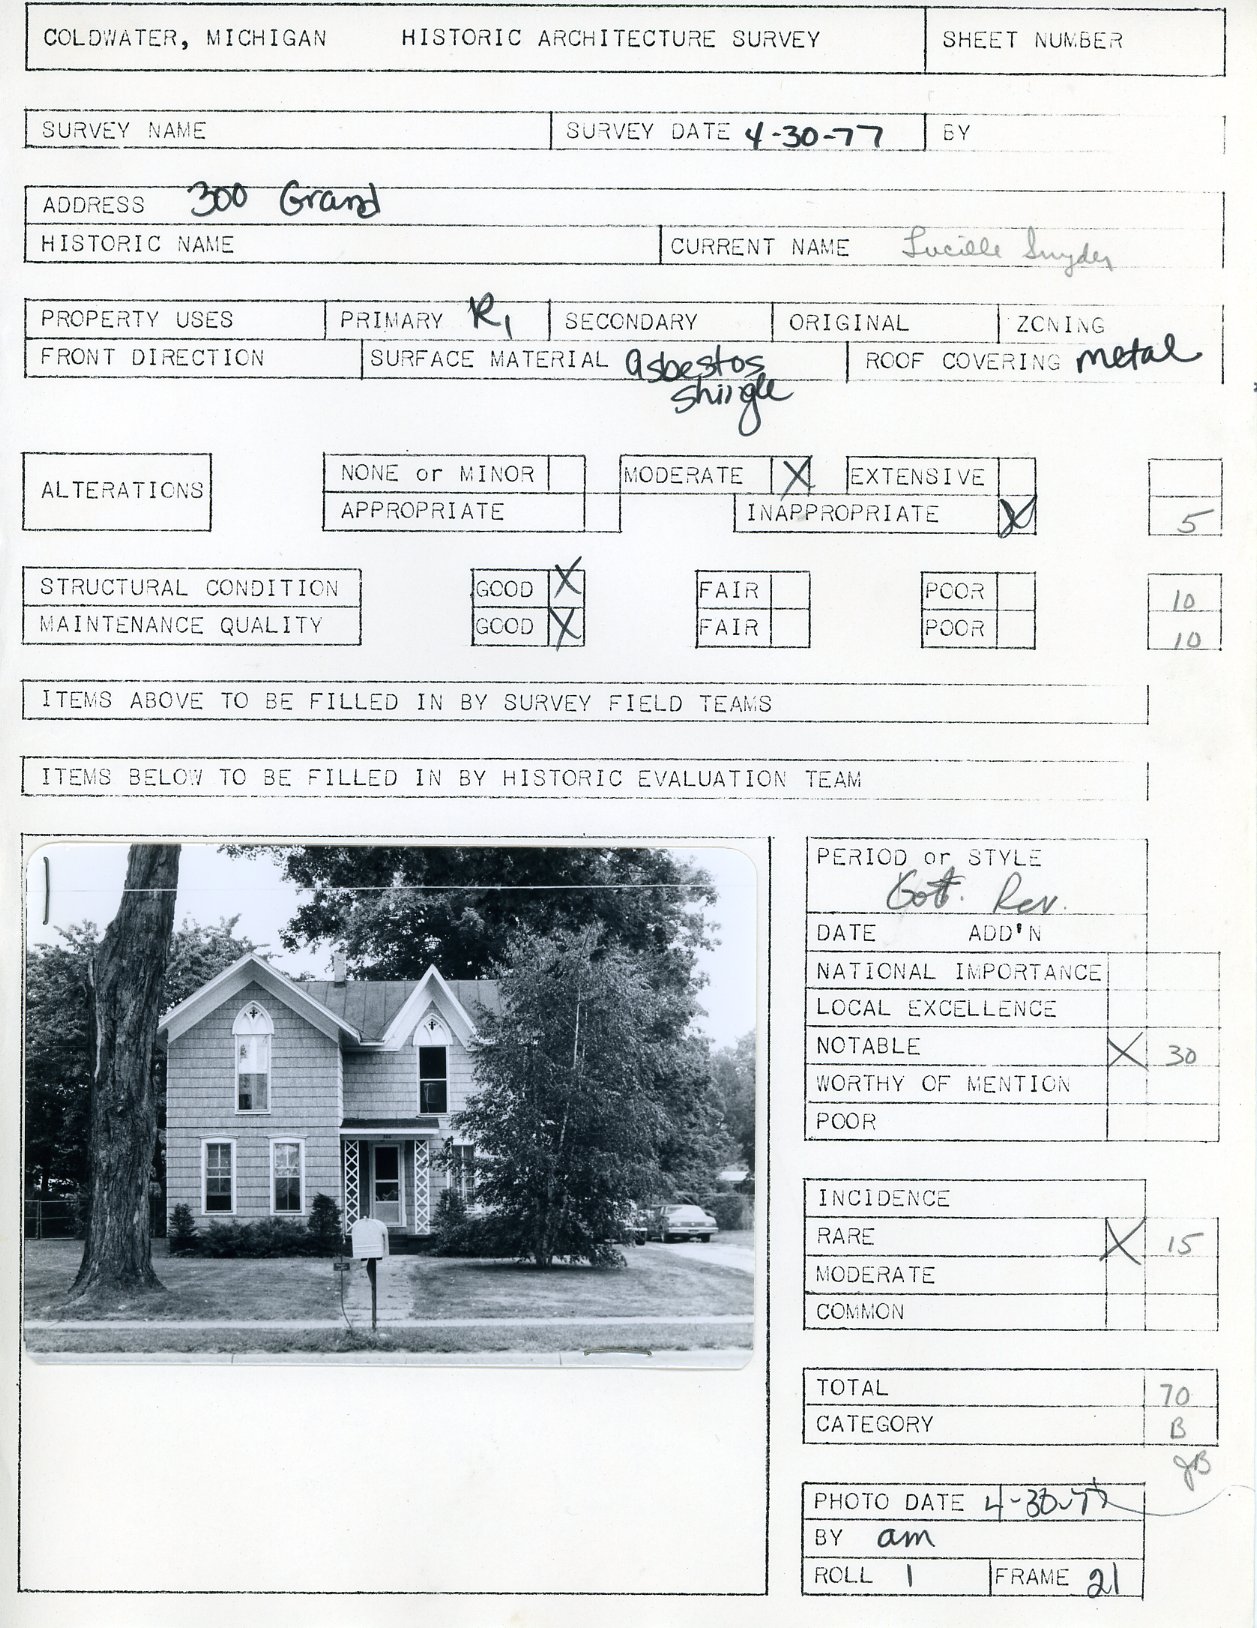 COLDWATER, MICHIGAN HISTORIC ARCHITECTURE SURVEY SHEET NUMBER
SURVEY NAME SURVEY DATE 4-30-77 BY
ADDRESS 300 Grand
HISTORIC NAME CURRENT NAME Lucille Snyder
PROPERTY USES PRIMARY R1 SECONDARY ORIGINAL ZONING
FRONT DIRECTION SURFACE MATERIAL asbestos shingle ROOF COVERING metal
ALTERATIONS NONE or MINOR MODERATE X EXTENSIVE
APPROPRIATE INAPPROPRIATE X 5
STRUCTURAL CONDITION GOOD X FAIR POOR 10
MAINTENANCE QUALITY GOOD X FAIR POOR 10
ITEMS ABOVE TO BE FILLED IN BY SURVEY FIELD TEAMS
ITEMS BELOW TO BE FILLED IN BY HISTORIC EVALUATION TEAM
PERIOD or STYLE
Got. Rev.
DATE ADD'N
NATIONAL IMPORTANCE
LOCAL EXCELLENCE
NOTABLE X 30
WORTHY OF MENTION
POOR
INCIDENCE
RARE X 15
MODERATE
COMMON
TOTAL 70
CATEGORY B
JB
PHOTO DATE 4-30-77
BY am
ROLL 1 FRAME 21